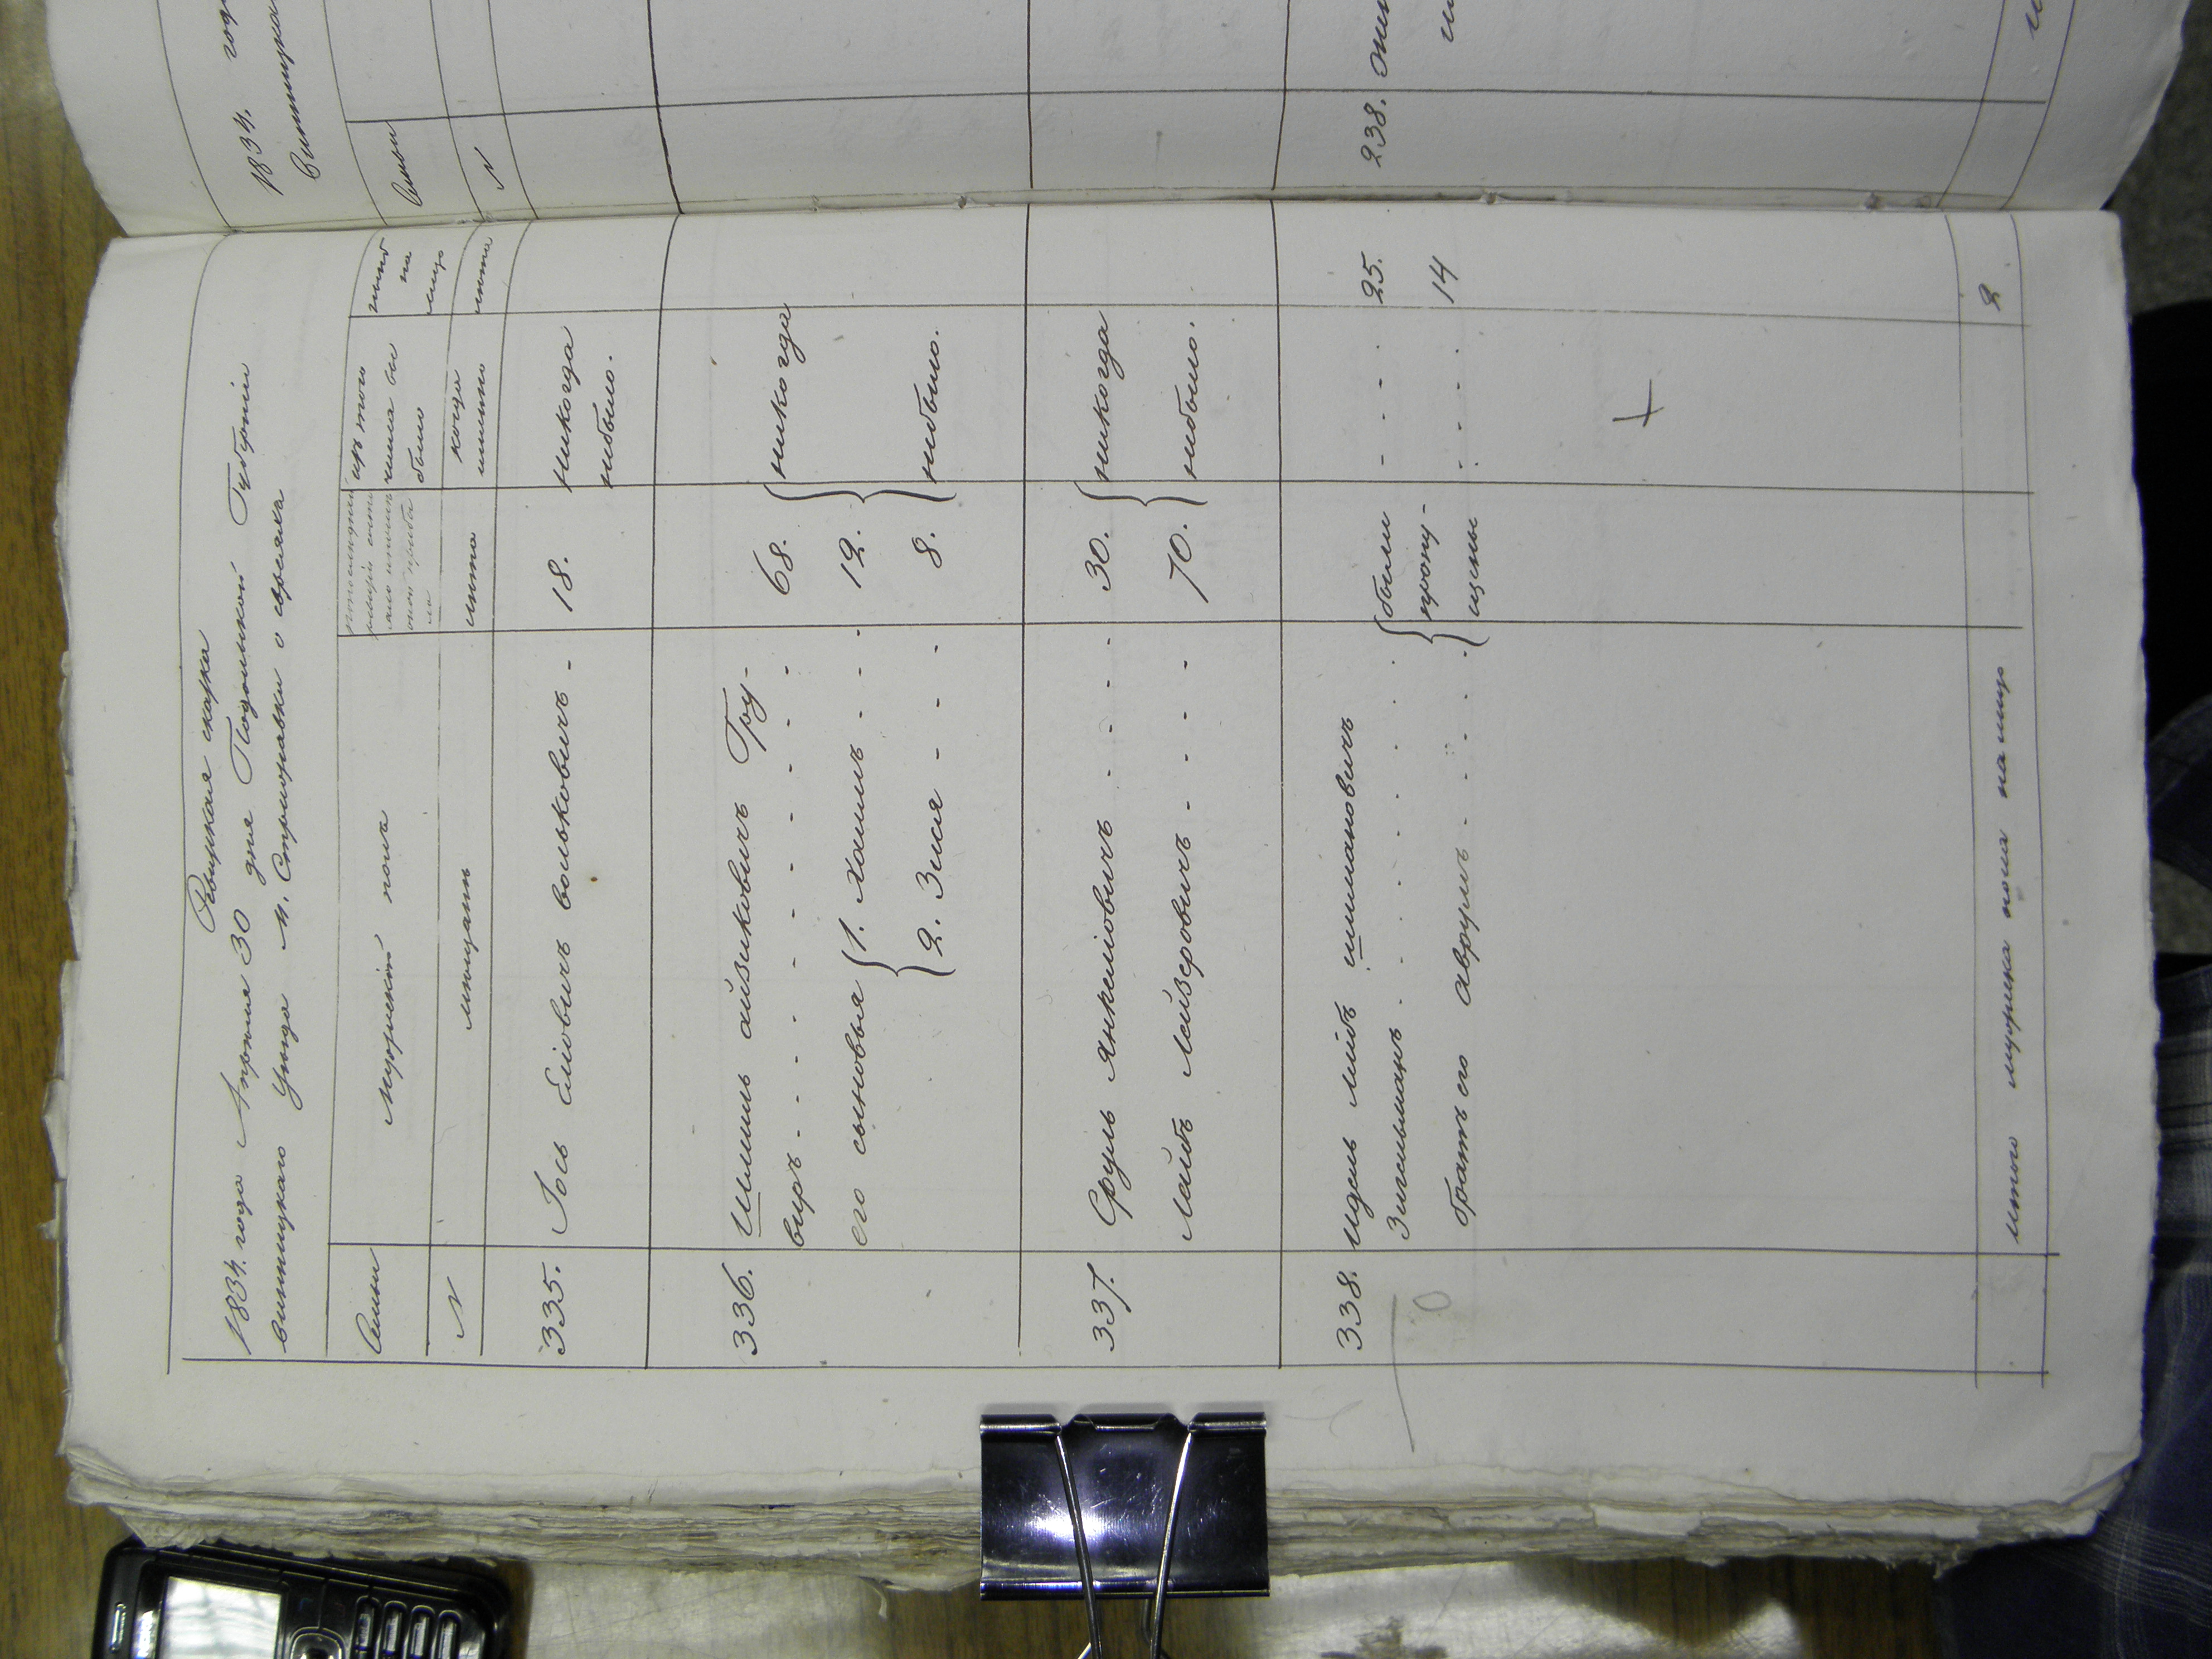 Ревизская сказка
1834. года Апреля 30 дня Подольской Губернии
винницкаго уезда м. Стрижавки о евреяхъ
Семьи
мужеский пола
по последней
ревизии состо
изъ того
числа вы
было
ныне
на
лицо
№
мещанъ
лета
когда
именно
лета
335. Іось Еліовичъ вольковичъ - 18. никогда
небыло.
336. Шлиомъ айзиковичъ Гру-
виръ - - - - - - - - 68. никогда
его сыновья 1. Хаимъ - - - 12.
2. Зися - - - - 8. небыло.
337. Сруль Янкелювичъ - - - - 30. никогда
Лайбъ Лейзеровичъ - - - - 70. небыло.
338. Идель Лейбъ шимановичъ
Зигельманъ . . . . . . . . были - - - . 25.
пропу-
братъ его аврумъ - - - . . щены . - - . 14
итого мужеска пола на лицо 2
1834. года
винницкаго
Семьи
№
238. они